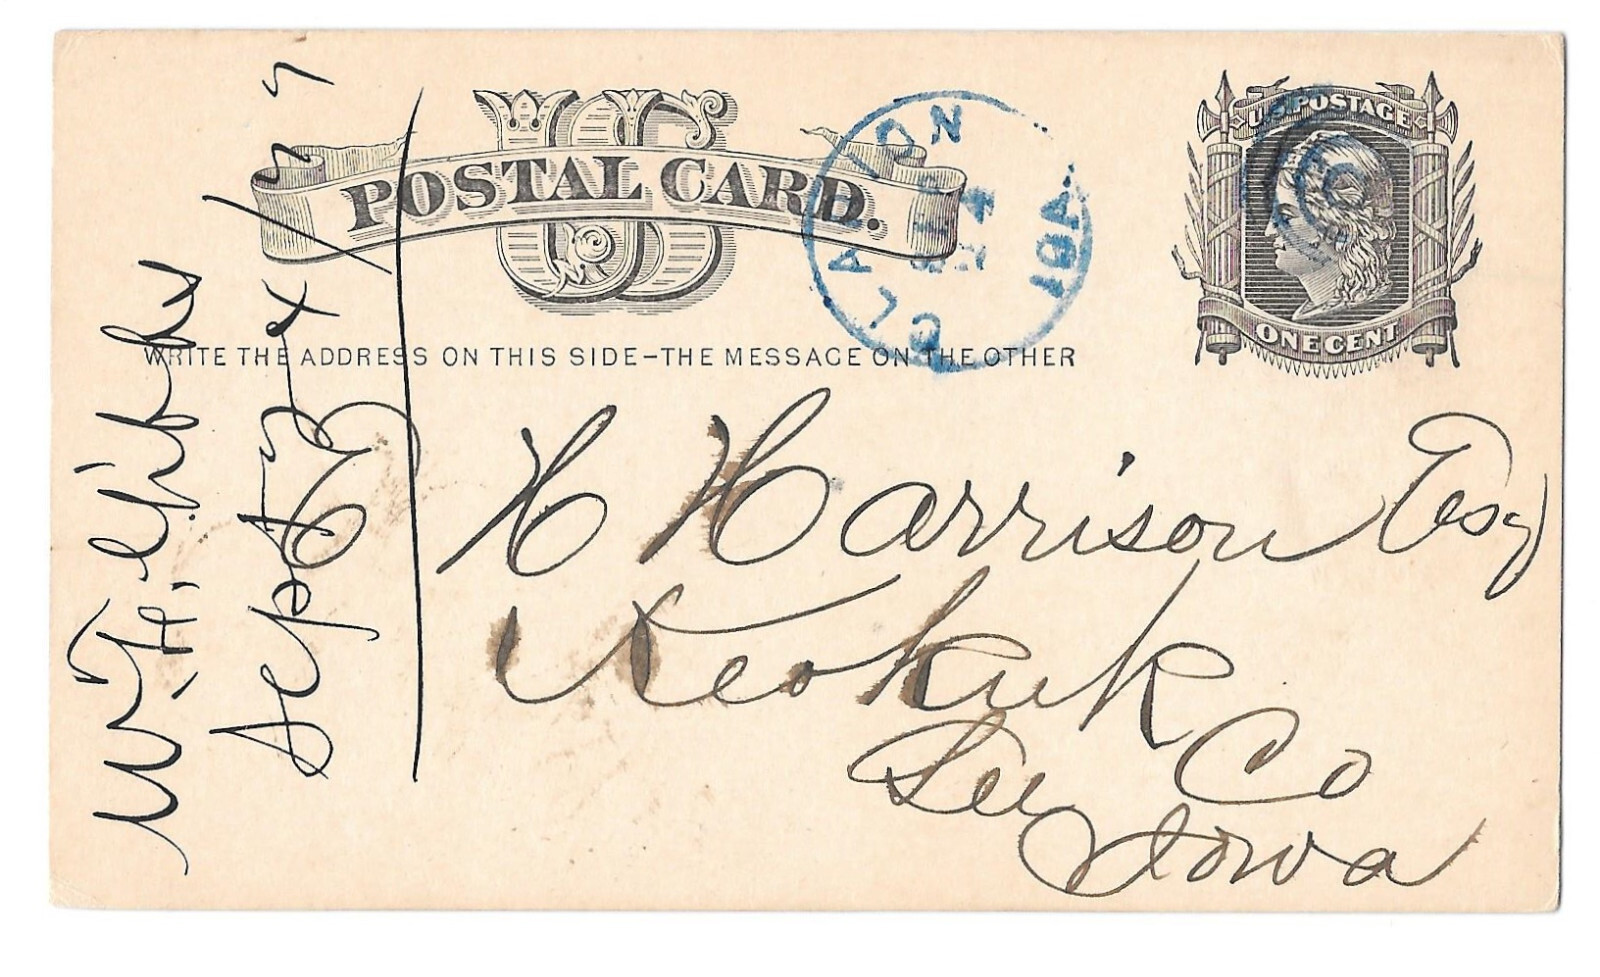 US
POSTAL CARD.
WRITE THE ADDRESS ON THIS SIDE-THE MESSAGE ON THE OTHER
U.S. POSTAGE
ONE CENT
SEP
24
10A
H Harrison Esq
Keokuk
Lee Co
Iowa
Sept